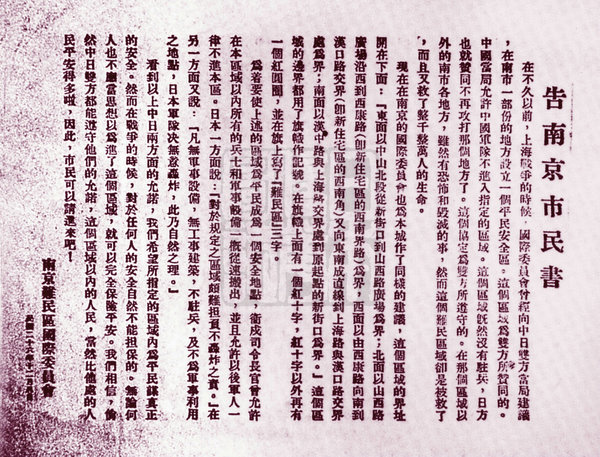 告南京市民書
在不久以前，上海戰爭的時候，國際委員會曾經向中日雙方當局建議
，在南市一部份的地方設立一個平民安全區。這個區域爲雙方所贊同的。
中國當局允許中國軍隊不進入指定的區域。這個區域旣然沒有駐兵，日方
也就贊同不再攻打那個地方了。這個協定爲雙方所遵守的。在那個區域以
外的南市各地方，雖然有恐怖和毀滅的事，然而這個難民區域卻是被救了
，而且又救了整千整萬人的生命。
現在在南京的國際委員會也爲本城作了同樣的建議，這個區域的界址
開在下面：『東面以中山北段從新街口到山西路廣場爲界；北面以山西路
廣場沿西到西康路（卽新住宅區的西南界路）爲界，西面以由西康路向南到
漢口路交界（卽新住宅區的西南角）又向東南成直線到上海路與漢口路交界
處爲界；南面以漢中路與上海路交界處到原起點的新街口爲界。』這個區
域的邊界都用了旗幟作記號。在旗幟上面有一個紅十字，紅十字以外再有
一個紅圓圈，並在旗上寫了『難民區』三字。
爲着要使上述的區域爲平民成爲一個安全地點，衞戍司令長官曾允許
在本區域以內所有的兵士和軍事設備一概從速搬出，並且允許以後軍人一
律不進本區。日本一方面說：『對於規定之區域頗難担負不轟炸之責。』在
另一方面又說：『凡無軍事設備，無工事建築，不駐兵，及不爲軍事利用
之地點，日本軍隊決無意轟炸，此乃自然之理。』
看到以上中日兩方面的允諾，我們希望所指定的區域內爲平民謀眞正
的安全。然而在戰爭的時候，對於任何人的安全自然不能担保的。無論何
人也不應當思想以爲進了這個區域，就可以完全保險平安。我們相信，倘
然中日雙方都能遵守他們的允諾，這個區域以內的人民，當然比他處的人
民平安得多啦，因此，市民可以請進來吧！
南京難民區國際委員會
民國二十六年十二月八日